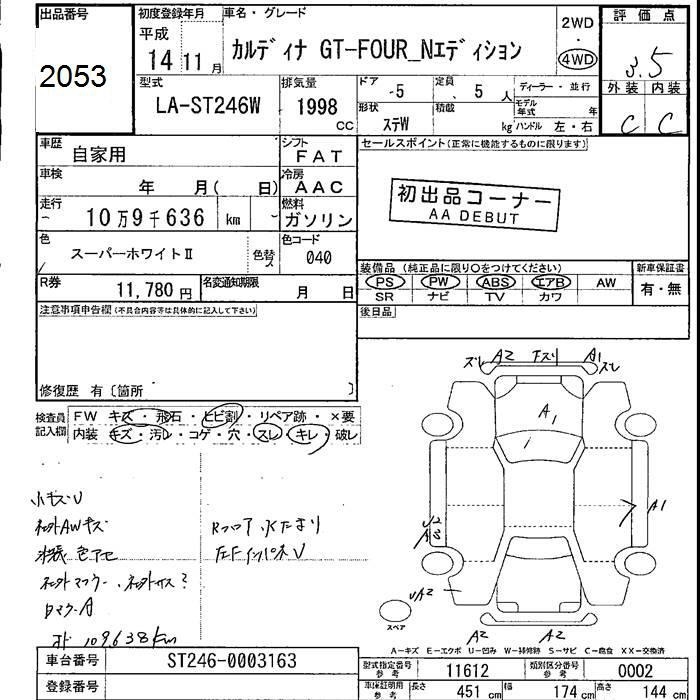 出品番号
2053
初度登録年月
平成
14 11月
車名・グレード
カルディナ GT-FOUR_Nエディション
2WD
・
4WD
評価点
3.5
外装 内装
C C
型式
LA-ST246W
排気量
1998
CC
ドア
-5
定員
5 人
形状
ステW
積載
kg
ディーラー・並行
モデル年式 年
ハンドル 左・右
車歴
自家用
シフト
FAT
車検
年 月( 日)
冷房
AAC
走行
10万9千636 km
燃料
ガソリン
色
スーパーホワイトⅡ
色替ヌ
色コード
040
R券
11,780円
名変通知期限
月 日
セールスポイント(正常に機能するものに限ります)
初出品コーナー
AA DEBUT
装備品 (純正品に限り○をつけてください)
PS PW ABS エアB AW
SR ナビ TV カワ
新車保証書
有・無
後日品
注意事項申告欄(不具合内容等は具体的に記入して下さい)
修復歴 有〔箇所 〕
検査員記入欄
FW キズ・飛石・ヒビ割・リペア跡・×要
内装 キズ・汚レ・コゲ・穴・スレ・キレ・破レ
小キズU
社外AWキズ
Rフロア水たまり
色アセ
左Fインパネ
社外マフラー、社外サス?
ロマクA
109,638km
ズレ A2 下スリ A1 ズレ
A1
A1
U2
UA2
A2 A2
スペア
A-キズ E-エクボ U-凹み W-補修跡 S-サビ C-腐食 XX-交換済
車台番号
ST246-0003163
登録番号
型式指定番号 参考
11612
類別区分番号 参考
0002
車庫証明用 参考
長さ 451 cm 幅 174 cm 高さ 144 cm